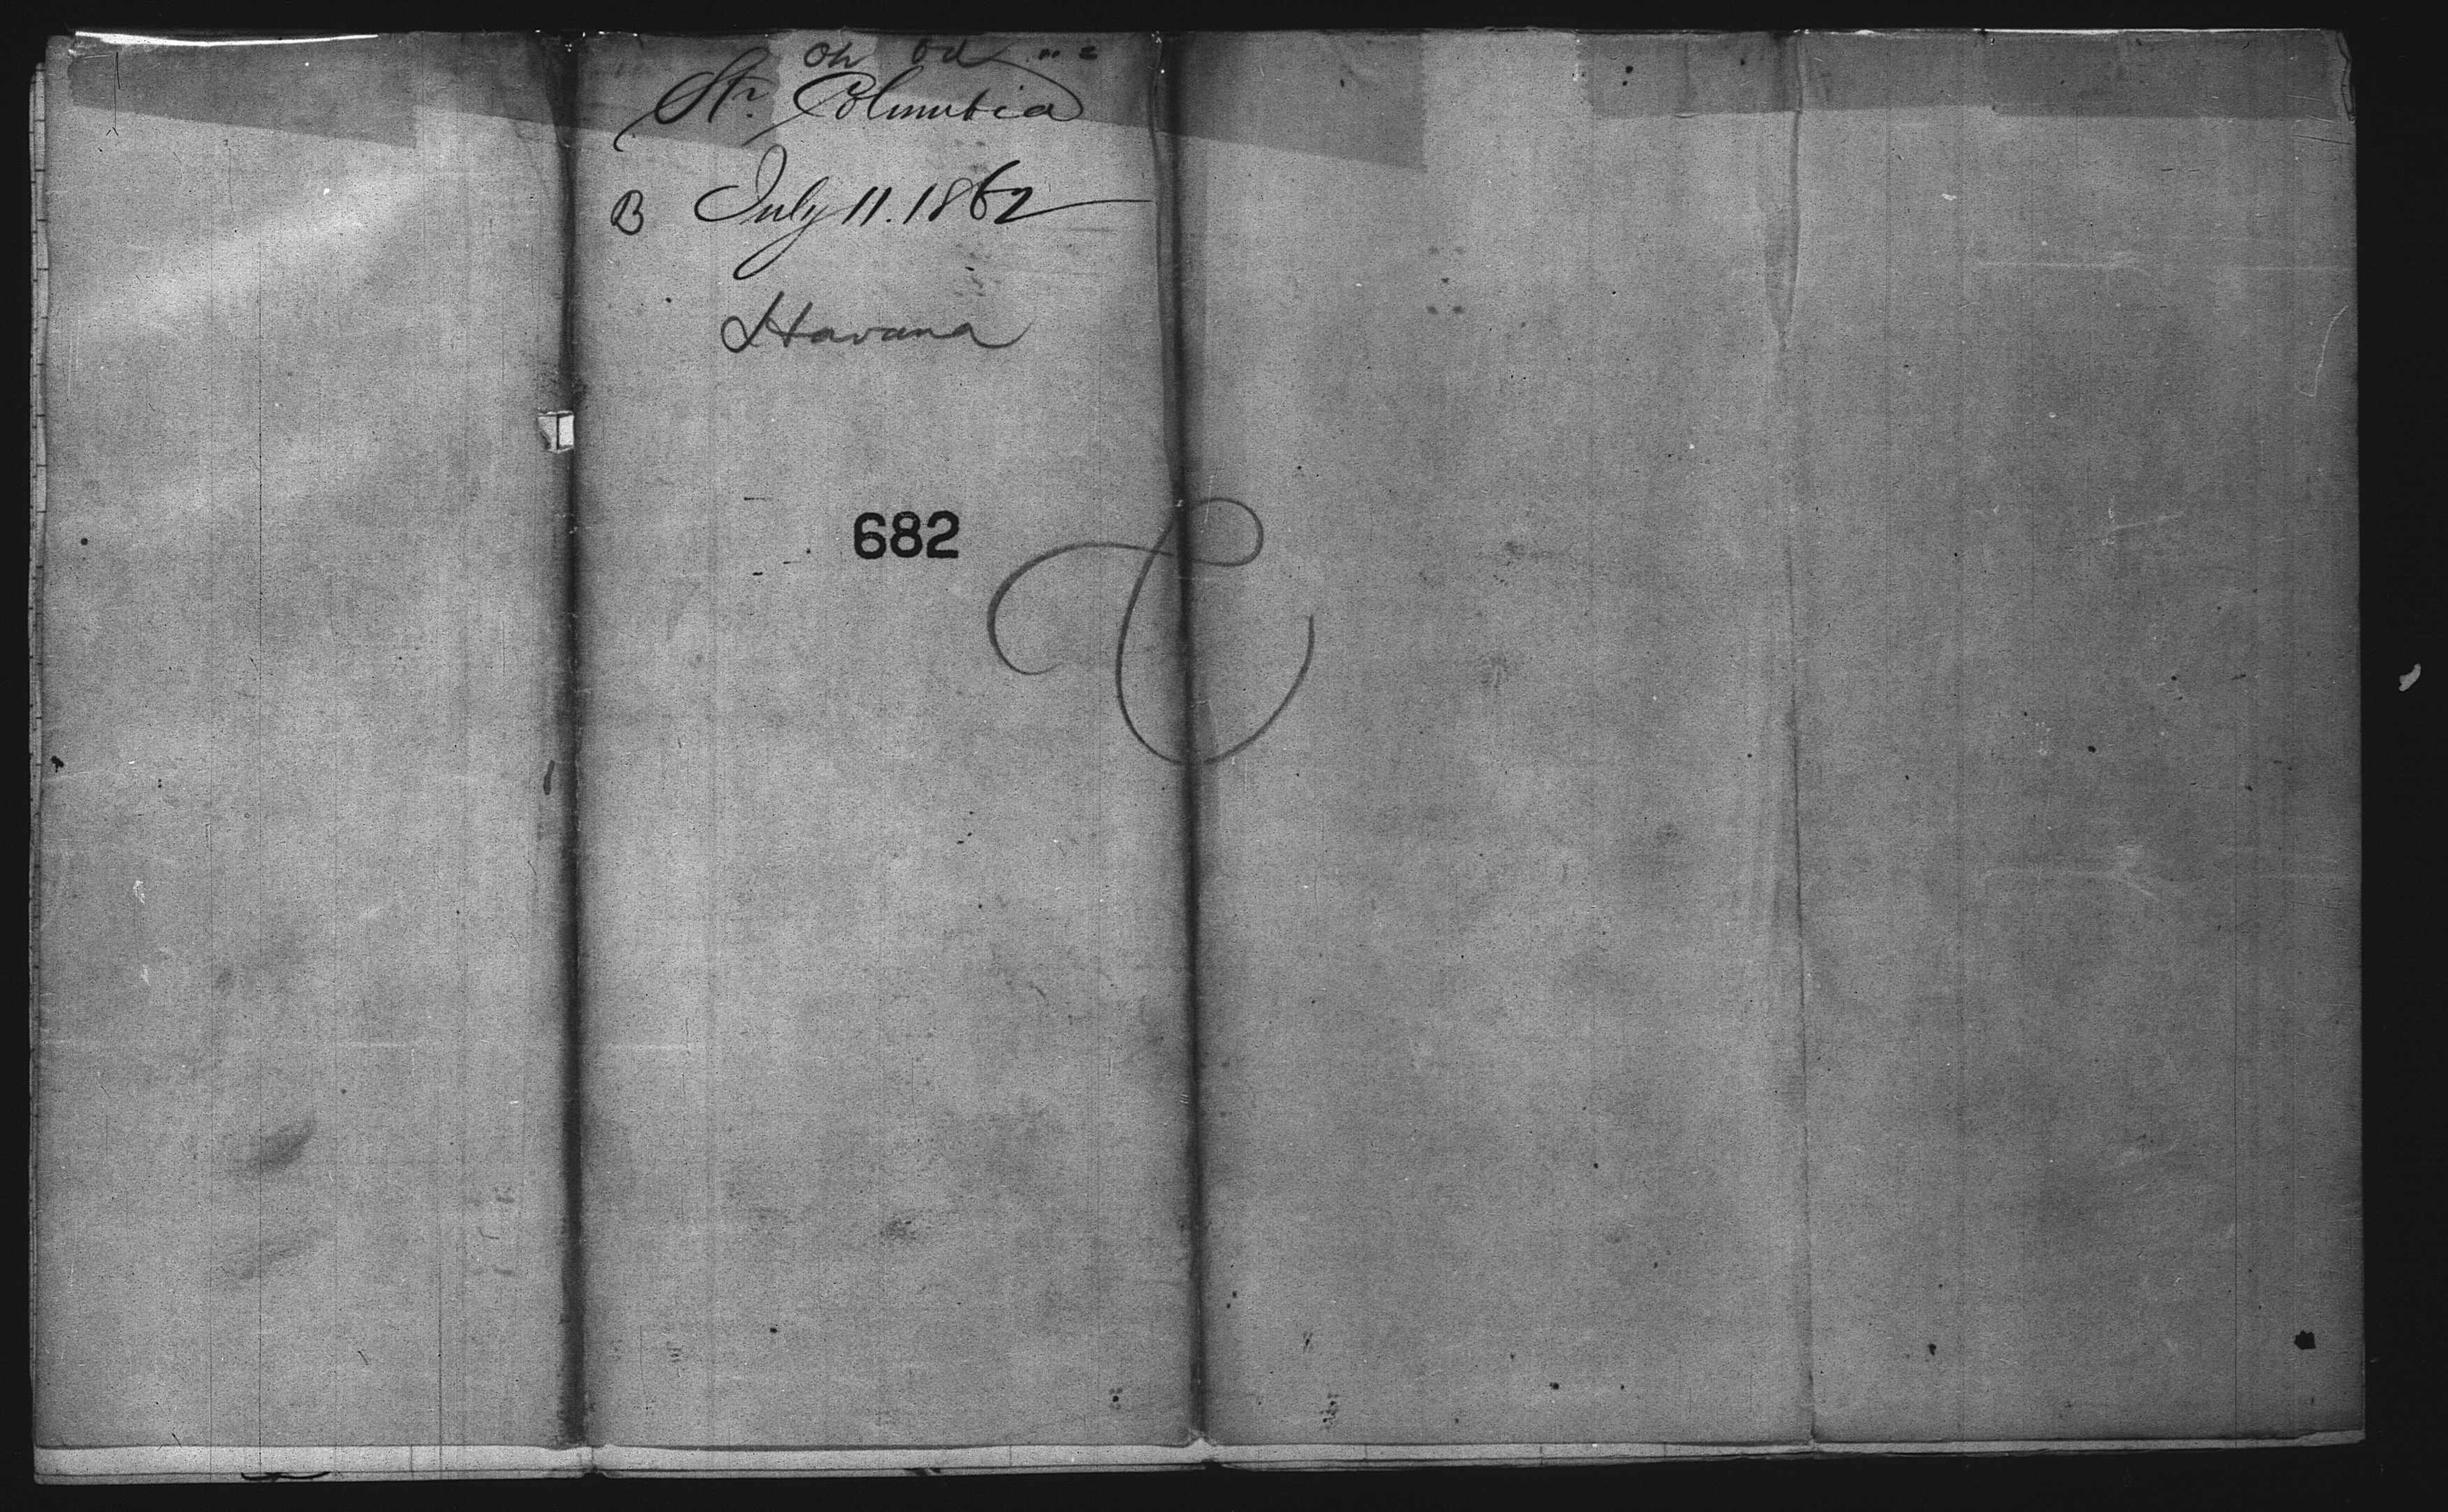 Str. Columbia
B July 11. 1862
Havana
682
C